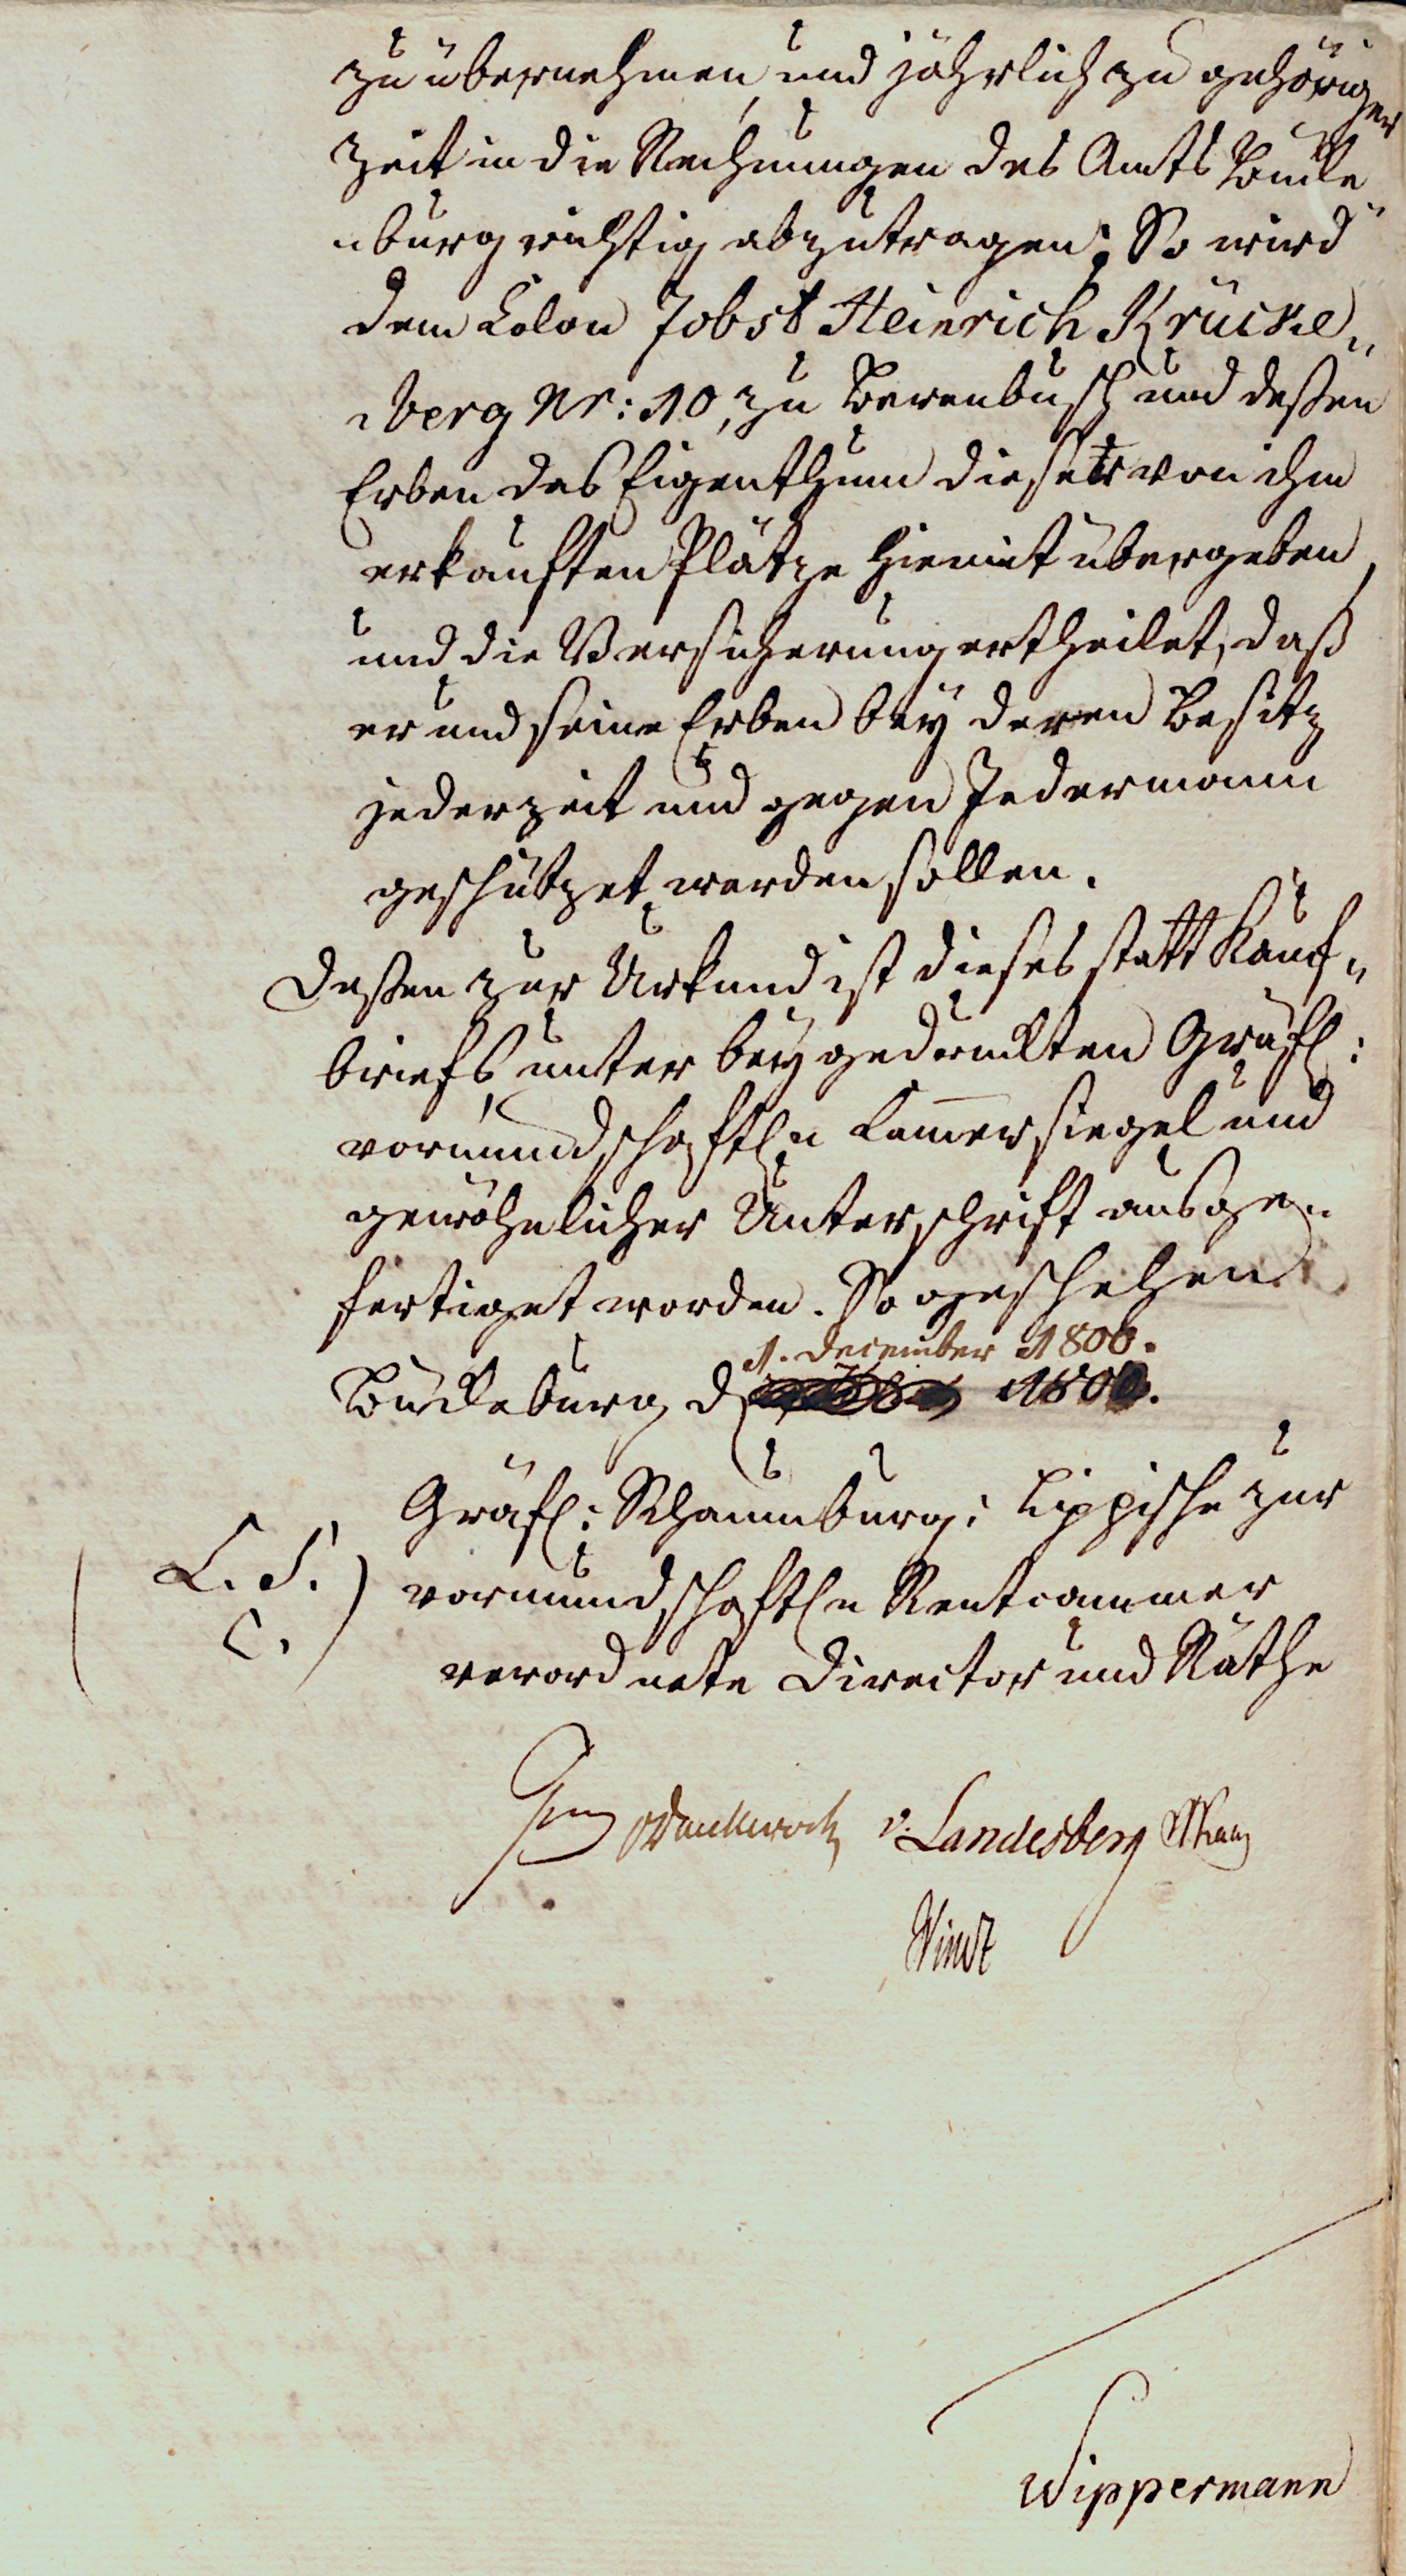 zu übernehmen, und jährlich zu gehöriger
Zeit in die Rechnungen des Amts Bücke
„burg richtig abzutragen; So wird
dem Colon Jobst Heinrich Krücke„
„berg Nr: 10, zu Berenbusch und deßen
Erben das Eigenthum dieser von ihm
erkauften Plätze hiemit übergeben,
und die Versicherung ertheilet, daß
er und seine Erben bey deren Besitz
jederzeit und gegen Jedermann
geschützet werden sollen.
Deßen zur Urkund ist dieses statt Kauf„
briefs, unter beygedruckten Gräfl:
vormundschaftl. Cammersiegel und
gewöhnlicher Unterschrift ausge„
fertiget worden. So geschehen
1. December 1800.
Bückeburg d 1800.
Gräfl: Schaumburg: Lippische zur
(L. S.) vormundschaftln Rentcammer
C.
verordnete Director und Räthe
v. Landesberg
Wippermann